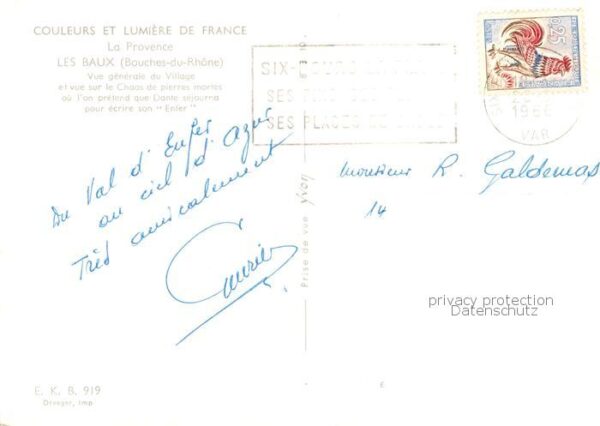 COULEURS ET LUMIÈRE DE FRANCE
La Provence
LES BAUX (Bouches-du-Rhône)
Vue générale du Village
et vue sur le Chaos de pierres mortes
où l'on prétend que Dante séjourna
pour écrire son "Enfer"
SIX-
SES
SES PLAGES DE
0,25
196
VAR
Du Val d'Enfer
au ciel d'Azur
Très amicalement
Monsieur R. Galdemas
14
Prise de vue yvon
privacy protection
Datenschutz
E. K. B. 919
Draeger, imp.
6